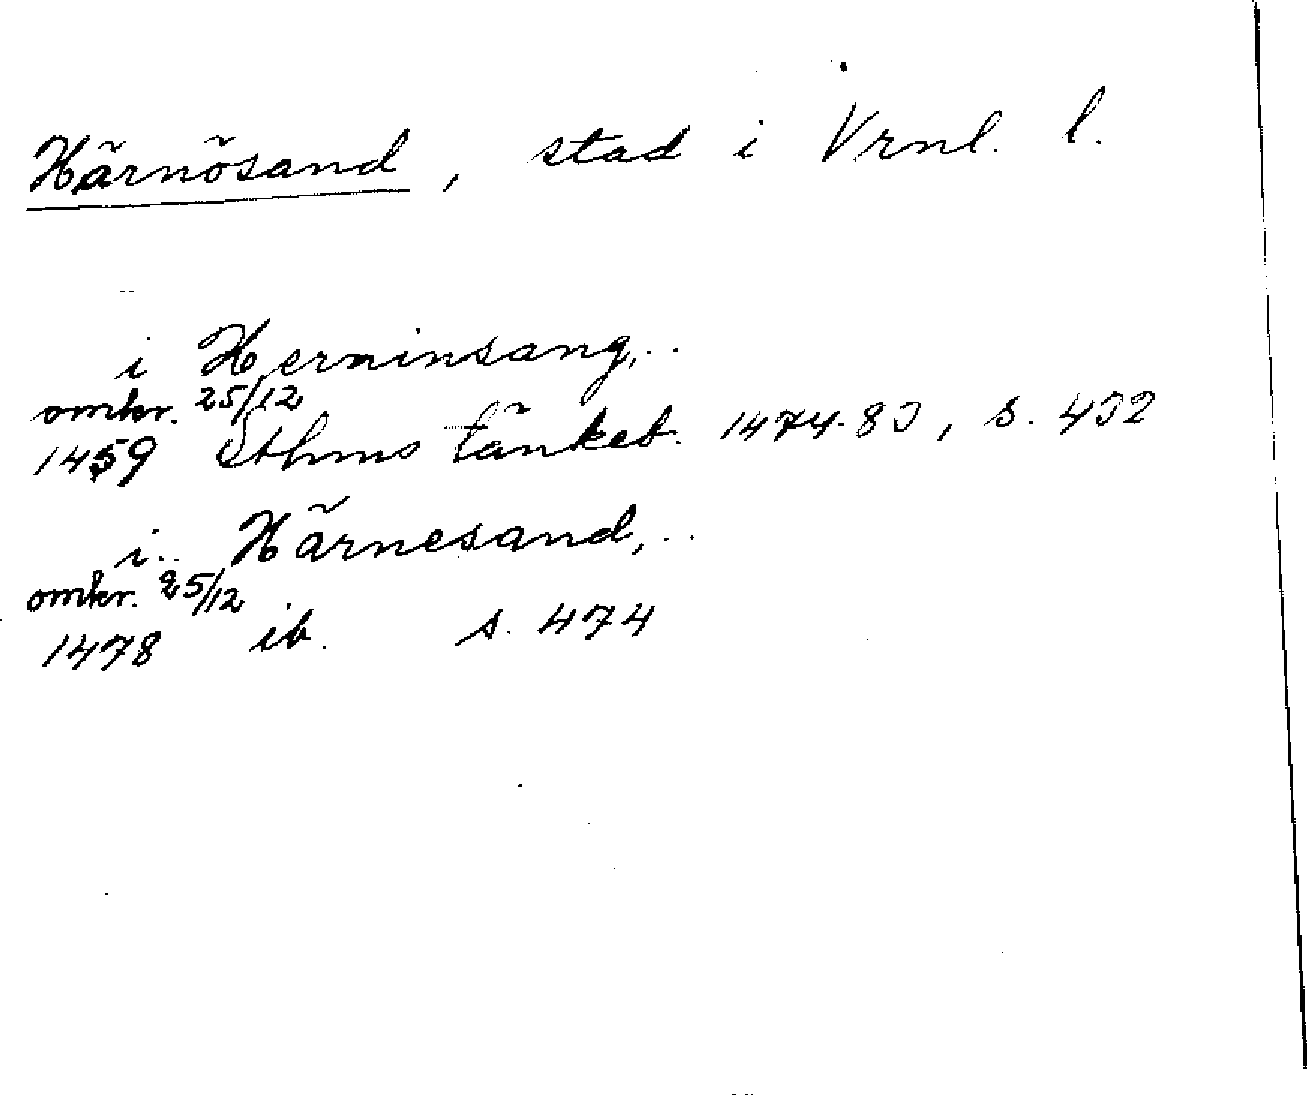 Härnösand, stad i Vrnl. l.
i Herninsang,..
omkr. 25/12
1459 Sthms tänkeb. 1474-83, s. 432
i.. Härnesand,..
omkr. 25/12
1478 ib. s. 474